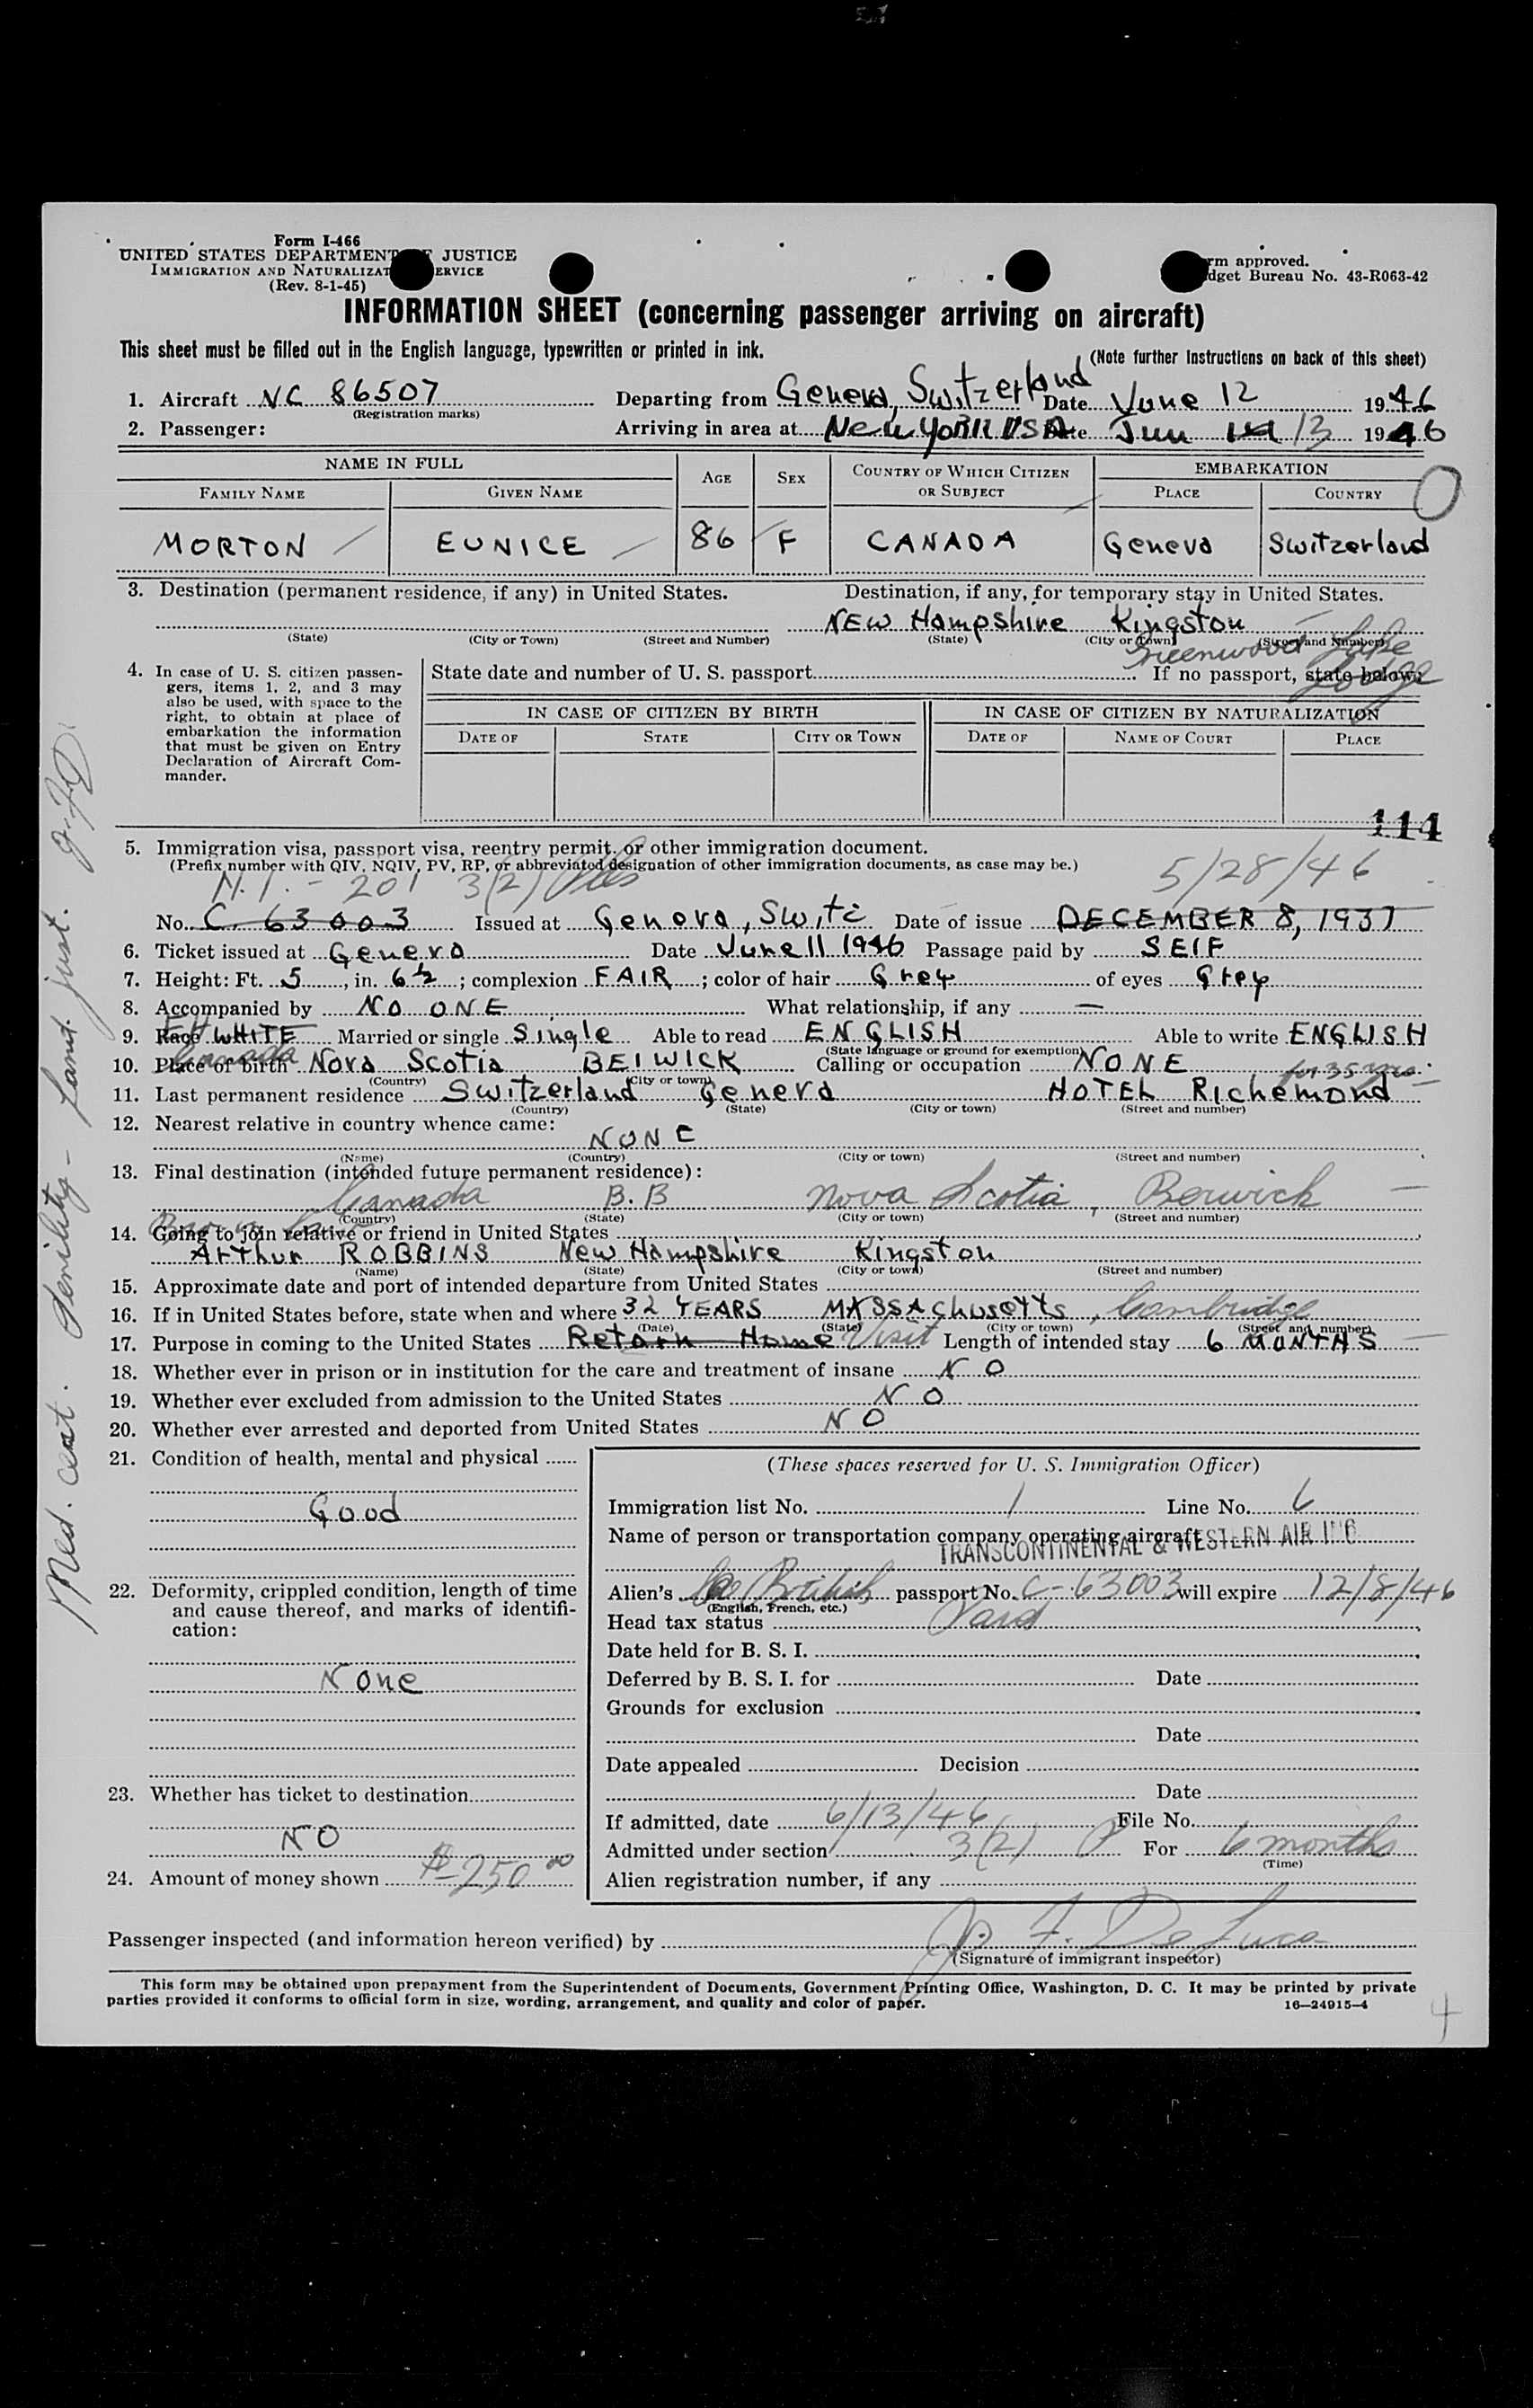 Form I-466
UNITED STATES DEPARTMENT JUSTICE
IMMIGRATION AND NATURALIZAT ERVICE
(Rev. 8-1-45)
rm approved.
dget Bureau No. 43-R063-42
INFORMATION SHEET (concerning passenger arriving on aircraft)
This sheet must be filled out in the English language, typewritten or printed in ink. (Note further instructions on back of this sheet)
1. Aircraft NC 86507 Departing from Geneva, Switzerland Date June 12 1946
(Registration marks)
2. Passenger: Arriving in area at New York USA Date Jun 13 1946
NAME IN FULL AGE SEX COUNTRY OF WHICH CITIZEN OR SUBJECT EMBARKATION
FAMILY NAME GIVEN NAME PLACE COUNTRY
MORTON EUNICE 86 F CANADA Geneva Switzerland
3. Destination (permanent residence, if any) in United States. Destination, if any, for temporary stay in United States.
NEW Hampshire Kingston
(State) (City or Town) (Street and Number) (State) (City or Town) (Street and Number)
Greenwood Lake
Lodge
4. In case of U. S. citizen passengers, items 1, 2, and 3 may also be used, with space to the right, to obtain at place of embarkation the information that must be given on Entry Declaration of Aircraft Commander.
State date and number of U. S. passport If no passport, state below:
IN CASE OF CITIZEN BY BIRTH IN CASE OF CITIZEN BY NATURALIZATION
DATE OF STATE CITY OR TOWN DATE OF NAME OF COURT PLACE
114
5. Immigration visa, passport visa, reentry permit, or other immigration document.
(Prefix number with QIV, NQIV, PV, RP, or abbreviated designation of other immigration documents, as case may be.)
201 3(2) 5/28/46
No. C 63003 Issued at Geneva, Switz Date of issue DECEMBER 8, 1937
6. Ticket issued at Geneva Date June 11 1946 Passage paid by SELF
7. Height: Ft. 5, in. 6½; complexion FAIR; color of hair Grey of eyes Grey
8. Accompanied by NO ONE What relationship, if any —
9. Race WHITE Married or single Single Able to read ENGLISH Able to write ENGLISH
(State language or ground for exemption)
10. Place of birth Canada Nova Scotia BEIWICK Calling or occupation NONE
(Country) (City or town)
for 35 yrs.
11. Last permanent residence Switzerland Geneva HOTEL Richemond
(Country) (State) (City or town) (Street and number)
12. Nearest relative in country whence came:
NONE
(Name) (Country) (City or town) (Street and number)
13. Final destination (intended future permanent residence):
Canada B.B Nova Scotia, Berwick
(Country) (State) (City or town) (Street and number)
14. Going to join relative or friend in United States
Arthur ROBBINS New Hampshire Kingston
(Name) (State) (City or town) (Street and number)
15. Approximate date and port of intended departure from United States
16. If in United States before, state when and where 32 YEARS MASSAchusetts, Cambridge
(Date) (State) (City or town) (Street and number)
17. Purpose in coming to the United States Return Home Visit Length of intended stay 6 MONTHS
18. Whether ever in prison or in institution for the care and treatment of insane NO
19. Whether ever excluded from admission to the United States NO
20. Whether ever arrested and deported from United States NO
21. Condition of health, mental and physical
Good
22. Deformity, crippled condition, length of time and cause thereof, and marks of identification:
None
23. Whether has ticket to destination
NO
24. Amount of money shown $250 00
(These spaces reserved for U. S. Immigration Officer)
Immigration list No. 1 Line No. 6
Name of person or transportation company operating aircraft
TRANSCONTINENTAL & WESTERN AIR INC
Alien's British passport No. C-63003 will expire 12/8/46
(English, French, etc.)
Head tax status
Date held for B. S. I.
Deferred by B. S. I. for Date
Grounds for exclusion
Date
Date appealed Decision
Date
If admitted, date 6/13/46 File No.
Admitted under section 3(2) For 6 months
(Time)
Alien registration number, if any
Passenger inspected (and information hereon verified) by J. F. De Luca
(Signature of immigrant inspector)
This form may be obtained upon prepayment from the Superintendent of Documents, Government Printing Office, Washington, D. C. It may be printed by private
parties provided it conforms to official form in size, wording, arrangement, and quality and color of paper. 16—24915-4
4
Med. cert. Senility -